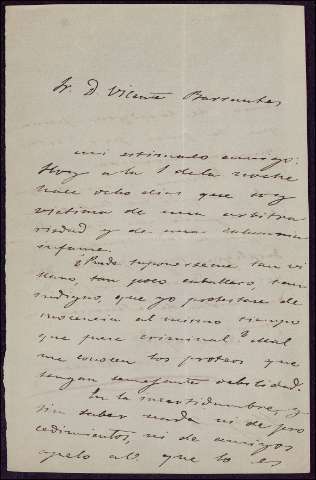 Sr. D. Vicente Barrantes
mi estimado amigo:
Hoy a la 1 de la noche
hace ocho dias que soy
victima de una arbitra
riedad y de una calumnia
infame.
¿Puede suponerseme tan vi
llano, tan poco caballero, tan
indigno, que yo protestase de
inocencia al mismo tiempo
que fuese criminal? Mal
me conocen los que
tengan semejante debilidad.
En la incertidumbre, y
sin saber nada ni de pro
cedimientos, ni de amigos
apelo al que lo es